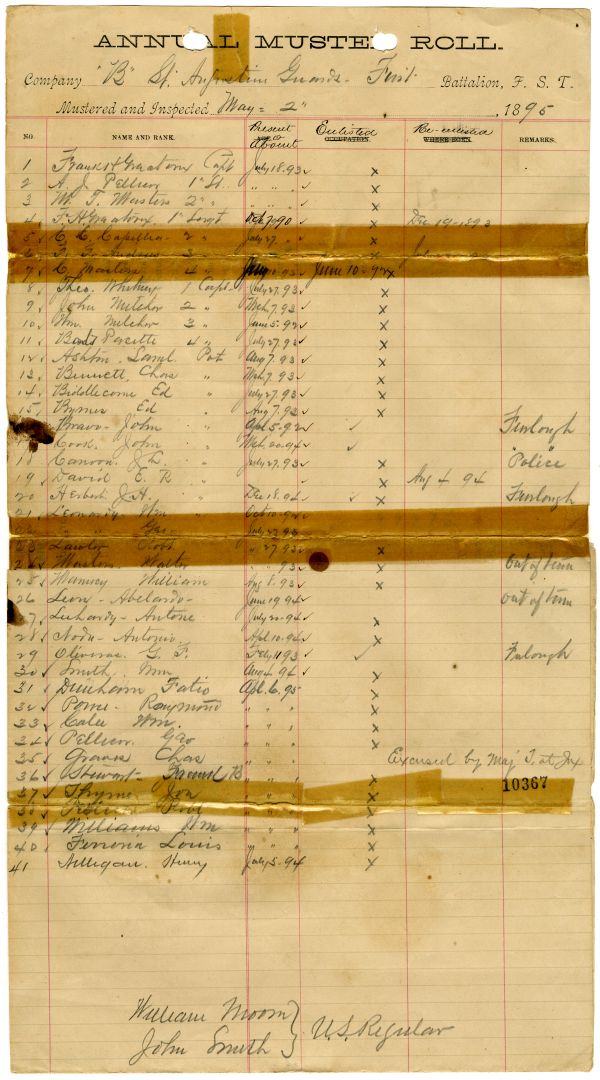 ANNUAL MUSTER ROLL.
Company "B" St. Augustine Guards - First Battalion, F. S. T.
Mustered and Inspected May - 2" , 1895
NO. NAME AND RANK. Present Enlisted Re-enlisted REMARKS.
About OCCUPATION. WHERE BORN.
1 Frank H Greatorex Capt July 18.93 ✓ x
2 A. J. Pellicer 1" Lt. " " " ✓ x
3 W. T. Masters 2" " " " " ✓ x
4 F. A. Greatorex 1" Sergt 7.90 x Dec 19-1893
5 C. E. Capella 2 " July 27 " ✓ x
6 3
7 C. Masters 4 " 93 ✓ June 10-92 x
8 Theo. Whitney 1 Corpl. July 27.93 ✓ x
9 John Melchor 2 " Mch 7.93 ✓ x
10 Wm. Melchor 3 " June 5-92 ✓ x
11 Pacetti 4 " July 27.93 ✓ x
12 Ashton, Saml Pvt Aug 7.93 ✓ x
13 Bennett, Chas " Mch 7.93 ✓ x
14 Biddlecome Ed " July 27.93 ✓ x
15 Byrnes Ed " Aug 7.93 ✓ x
Bravo - John " Apl 5-92 ✓ ✓ Furlough
Cook, John " Mch 20-94 ✓ ✓ "
18 Canova J. L. " July 27.93 ✓ x "Police"
19 David E. R " x Aug 4 94
20 Herbert J. A. " Dec 18.94 ✓ ✓ x Furlough
21 Leonardy Wm Oct 10-92 ✓
22 " Geo July 27.93
23 Lawlor Robt " 27.93 ✓ x
24 Masters Walter " " 93 ✓ x Out of town
25 Manucy William Aug 8.93 ✓ x
26 Leon - Abelardo - June 19.94 ✓ Out of town
27 Lehardy - Antone July 20-94 ✓ x
28 Noda - Antonio Apl 10-94 ✓ x
29 Oliveras G. F. Feby 11 93 ✓ ✓ Furlough
30 Smith, Wm Aug 4 94 ✓
31 Dunham Fatio Apl. 6. 95 x
32 Ponce - Raymond " " " x
33 Calee Wm. " " " x
34 Pellicer Geo " " " x
35 Graves Chas " " " Excused by Maj T. at Jax
36 Stewart - B " " " x
10367
37 Thyme Jon " " " x
38 " " " x
39 Williams Wm " " " x
40 Ferreria Louis " " " x
41 Milligan. Henry July 5-94 x
William Moore }
John Smith } U.S. Regular